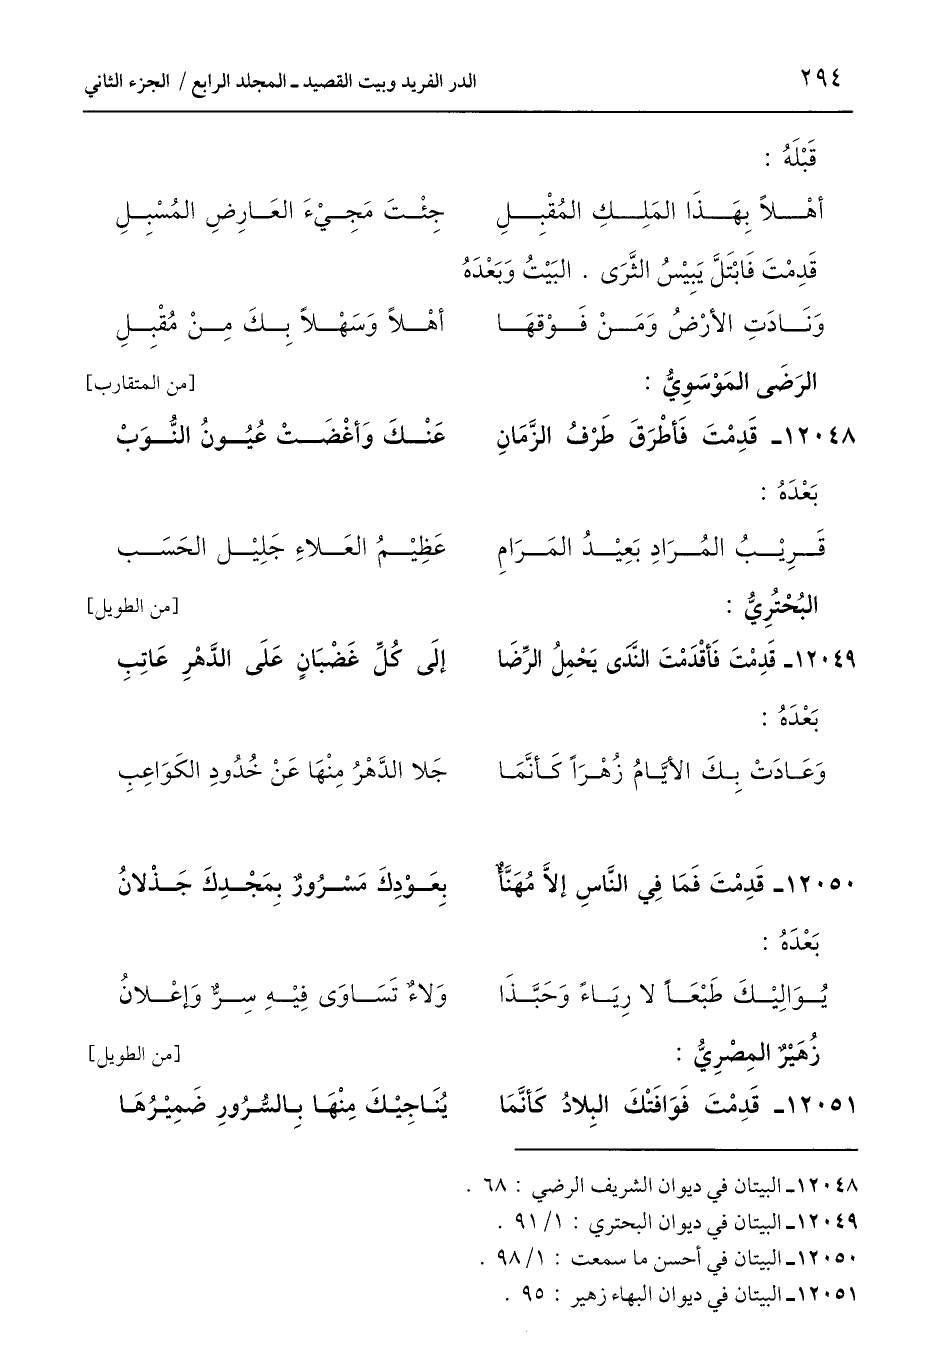 ٢٩٤ الدر الفريد وبيت القصيد ـ المجلد الرابع / الجزء الثاني
قَبْلَهُ :
أهْـــلاً بِهَـــذَا المَلِـــكِ المُقْبِـــلِ جِئْـتَ مَجِـيْءَ العَـارِضِ المُسْبِـلِ
قَدِمْتَ فَابْتَلَّ يَبِيْسُ الثَّرَى . البَيْتُ وَبَعْدَهُ
وَنَـــادَتِ الأَرْضُ وَمَـــنْ فَـــوْقهَـا أهْـلاً وَسَهْـلاً بِـكَ مِـنْ مُقْبِـلِ
الرَضَى المَوْسَوِيُّ : [من المتقارب]
١٢٠٤٨ـ قَدِمْتَ فَأَطْرَقَ طَرْفُ الزَّمَانِ عَنْـكَ وَأغْضَـتْ عُيُـونُ النُّـوَبْ
بَعْدَهُ :
قَـرِيْـبُ المُـرَادِ بَعِيْـدُ المَـرَامِ عَظِيْـمُ العَـلاءِ جَلِيْـل الحَسَـب
البُحْتُرِيُّ : [من الطويل]
١٢٠٤٩ـ قَدِمْتَ فَأقْدَمْتَ النَّدَى يَحْمِلُ الرِّضَا إلَى كُلِّ غَضْبَانٍ عَلَى الدَّهْرِ عَاتِبِ
بَعْدَهُ :
وَعَـادَتْ بِـكَ الأيَّـامُ زُهْـرَاً كَـأنَّمَا جَلا الدَّهْرُ مِنْهَا عَنْ خُدُودِ الكَوَاعِبِ
١٢٠٥٠ـ قَدِمْتَ فَمَا فِي النَّاسِ إلاَّ مُهَنَّأٌ بِعَـوْدِكَ مَسْـرُورٌ بِمَجْـدِكَ جَـذْلانُ
بَعْدَهُ :
يُـوَالِيْـكَ طَبْعَـاً لا رِيَـاءً وَحَبَّـذَا وَلاءٌ تَسَـاوَى فِيْـهِ سِـرٌّ وَإعْـلانُ
زُهَيْرٌ المِصْرِيُّ : [من الطويل]
١٢٠٥١ـ قَدِمْتَ فَوَافَتْكَ البِلادُ كَأنَّمَا يُنَـاجِيْكَ مِنْهَـا بِـالسُّرُورِ ضَمِيْرُهَـا
١٢٠٤٨ـ البيتان في ديوان الشريف الرضي : ٦٨ .
١٢٠٤٩ـ البيتان في ديوان البحتري : ١/ ٩١ .
١٢٠٥٠ـ البيتان في أحسن ما سمعت : ١/ ٩٨ .
١٢٠٥١ـ البيتان في ديوان البهاء زهير : ٩٥ .